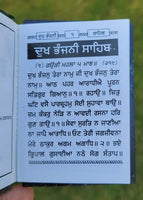 ਦੁਖ ਭੰਜਨੀ ਸਾਹਿਬ
ਦੁਖ ਭੰਜਨੀ ਸਾਹਿਬ
(੧) ਗਉੜੀ ਮਹਲਾ ੫ ਮਾਝ ॥
ਦੁਖ ਭੰਜਨੁ ਤੇਰਾ ਨਾਮੁ ਜੀ ਦੁਖ ਭੰਜਨੁ ਤੇਰਾ
ਨਾਮੁ ॥ ਆਠ ਪਹਰ ਆਰਾਧੀਐ ਪੂਰਨ
ਸਤਿਗੁਰ ਗਿਆਨੁ ॥੧॥ ਰਹਾਉ ॥ ਜਿਤੁ
ਘਟਿ ਵਸੈ ਪਾਰਬ੍ਰਹਮੁ ਸੋਈ ਸੁਹਾਵਾ ਥਾਉ ॥
ਜਮ ਕੰਕਰੁ ਨੇੜਿ ਨ ਆਵਈ ਰਸਨਾ ਹਰਿ
ਗੁਣ ਗਾਉ ॥੧॥ ਸੇਵਾ ਸੁਰਤਿ ਨ ਜਾਣੀਆ
ਨਾ ਜਾਪੈ ਆਰਾਧਿ ॥ ਓਟ ਤੇਰੀ ਜਗਜੀਵਨਾ
ਮੇਰੇ ਠਾਕੁਰ ਅਗਮ ਅਗਾਧਿ ॥੨॥ ਭਏ
ਕ੍ਰਿਪਾਲ ਗੁਸਾਈਆ ਨਠੇ ਸੋਗ ਸੰਤਾਪ ॥